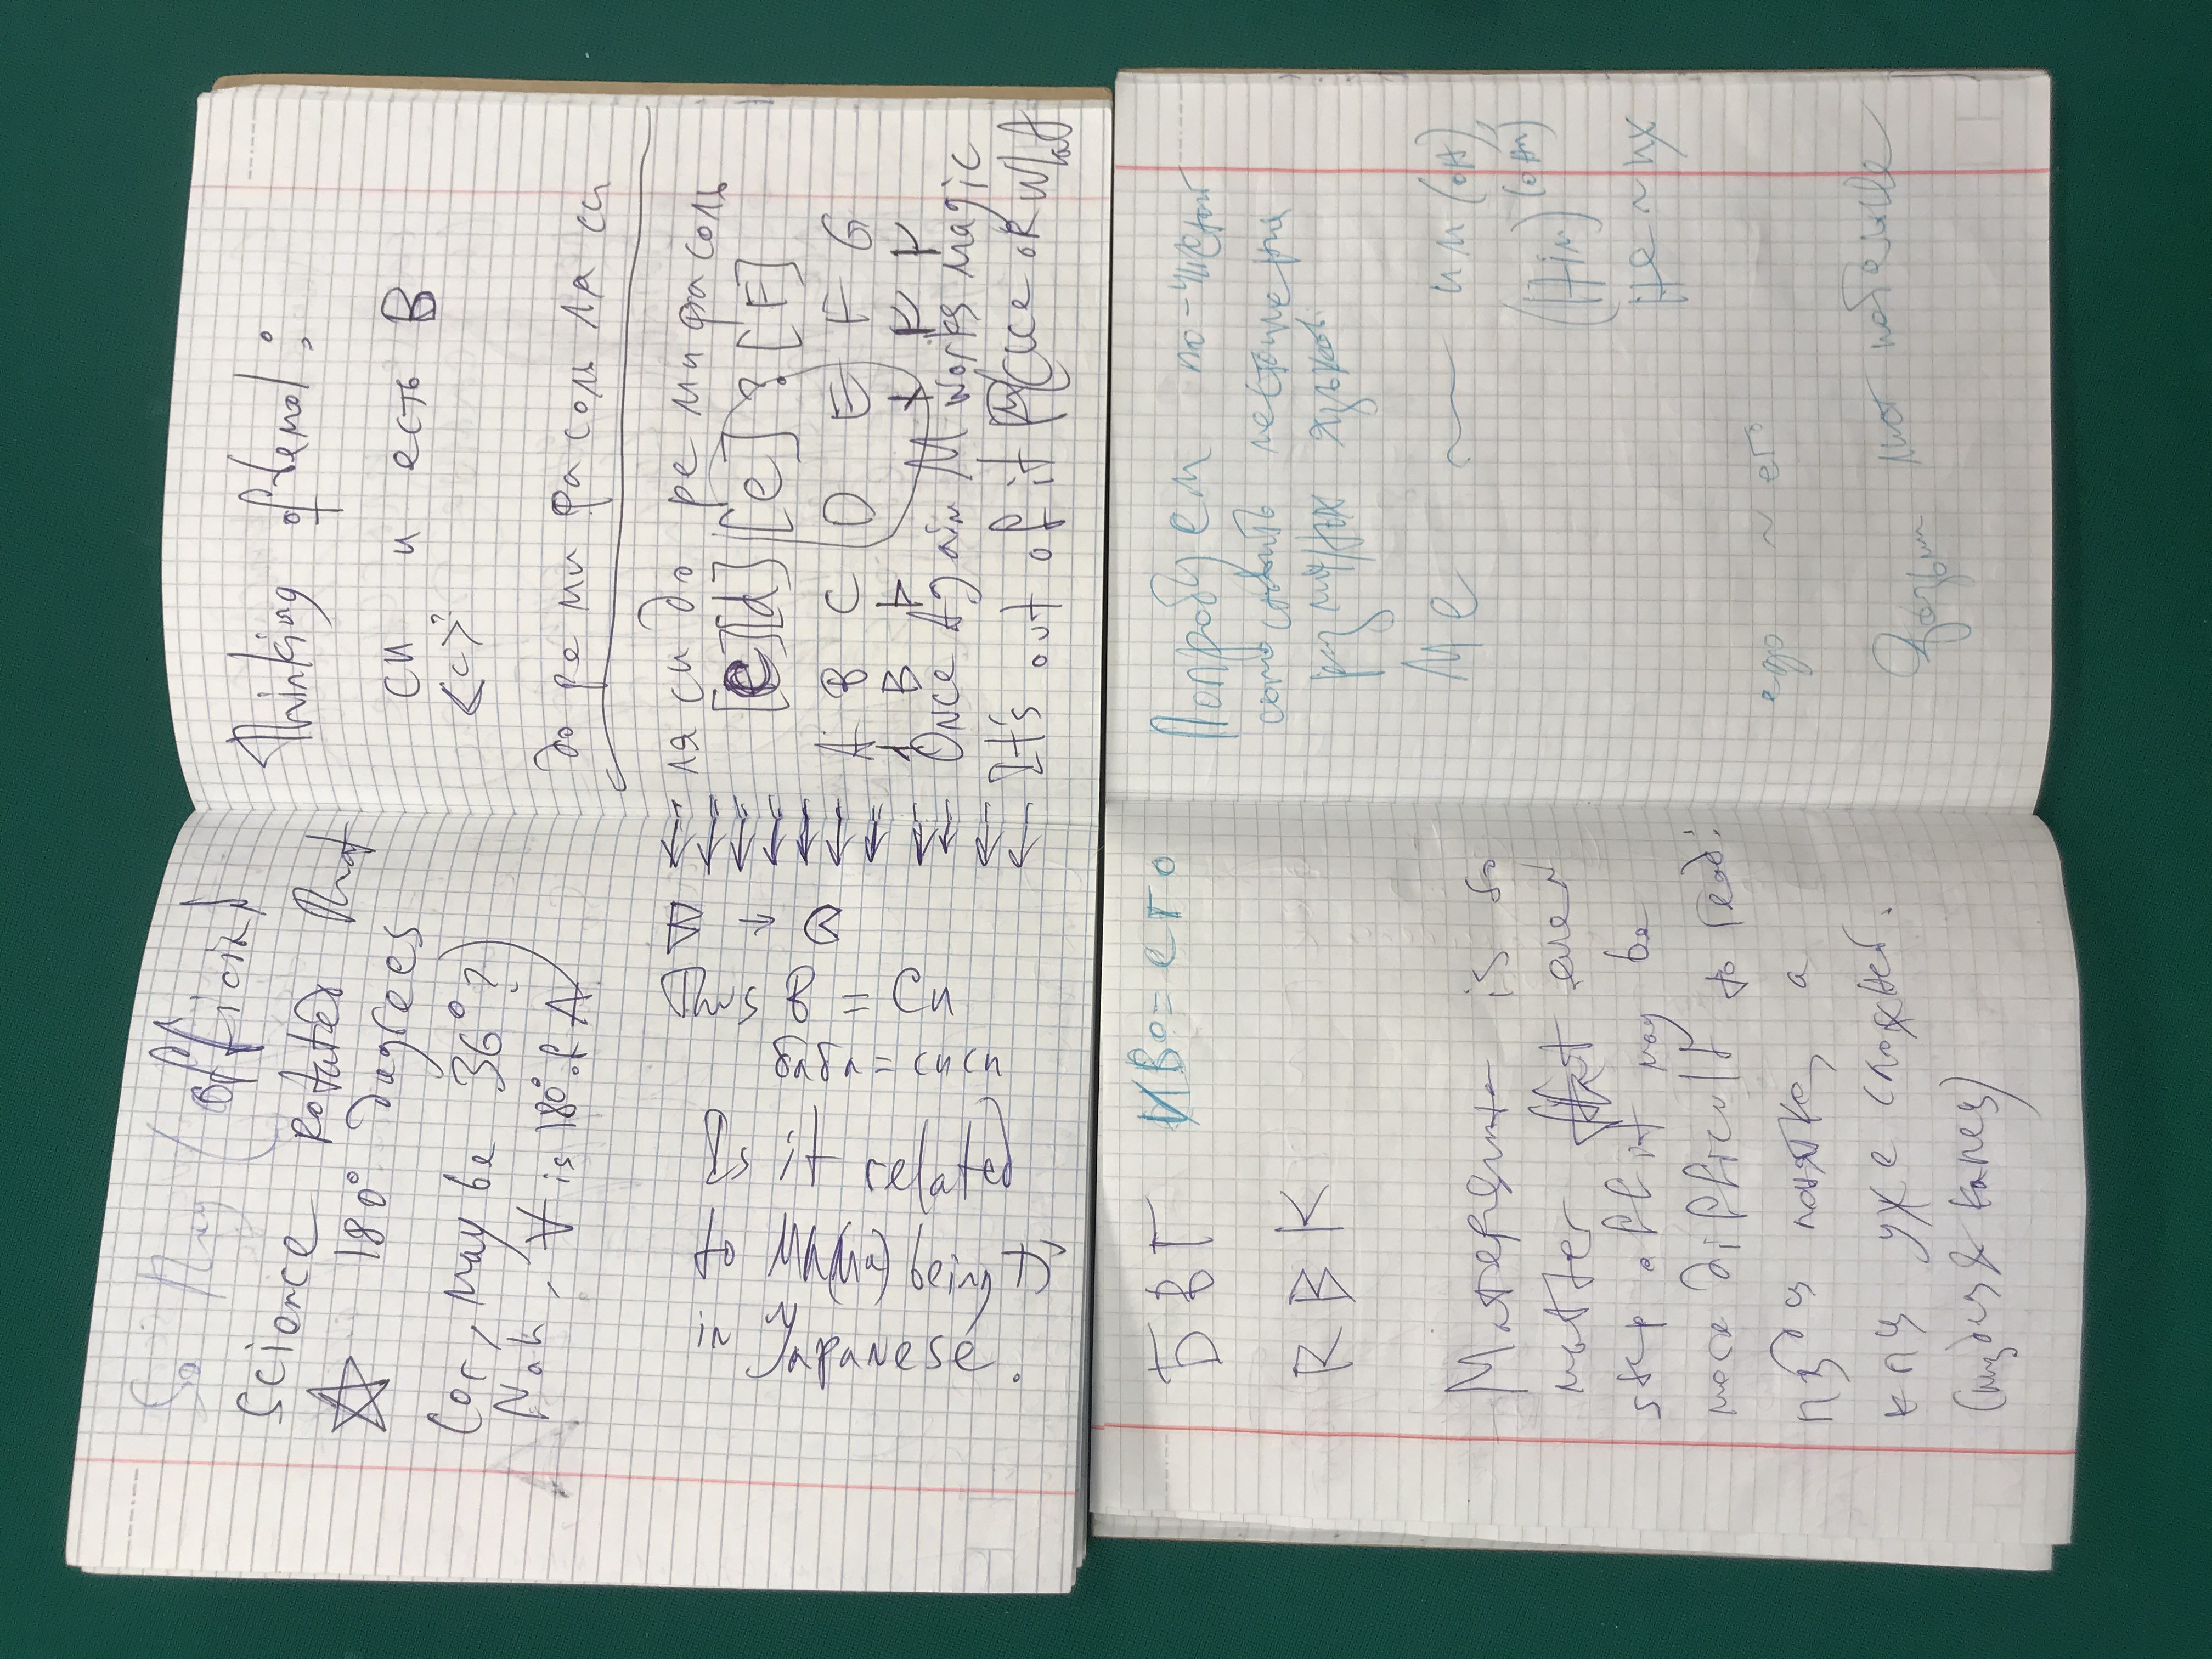 So They (official
Science rotated that
180° dagrees
(or, may be 36°?)
Nah, ∀ is 180° of A
Thus B = Си
= сиси
Is it related
to being
in Japanese.
Thinking of :
си и есть B
<c>?
до ре ми фа соль ля си
ля си до ре ми фа соль
[c] [d] [e] ? [F]
A B C D E F G
Once Again M works magic
It's out of it place or what
Б В Г ИВо = его
R B K
is so
matter that even
step off it may be
more difficult to read:
пздц понятно, а
кпц уже сложней.
(пиздец & капец)
Попробуем
сопоставить местоимения
языков
Me ~ им (он),
(Him) (они)
He ~ их
его ~ его
лист